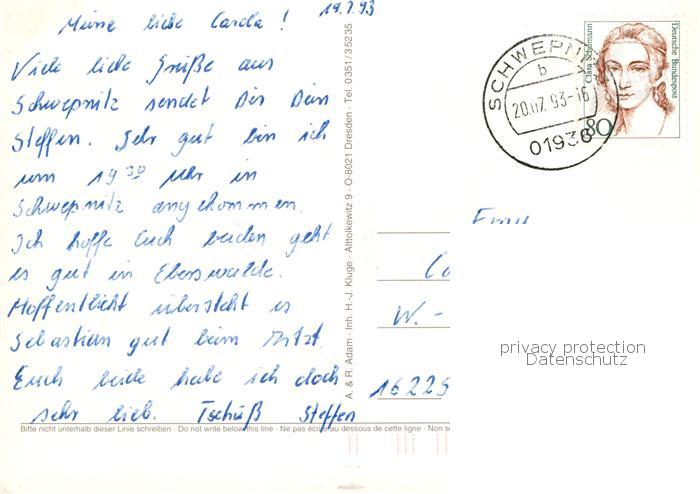 19.7.93
Meine liebe Carola !
Viele liebe Grüße aus
Schwepnitz sendet Dir Dein
Steffen. Sehr gut bin ich
um 19 30 Uhr in
Schwepnitz angekommen.
Ich hoffe Euch beiden geht
es gut in Eberswalde.
Hoffentlicht übersteht es
Sebastian gut beim Artzt.
Euch beide habe ich doch
sehr lieb. Tschüß Steffen
Bitte nicht unterhalb dieser Linie schreiben · Do not write below this line · Ne pas écrire au dessous de cette ligne · Non s
A. & R. Adam · Inh. H.-J. Kluge · Alttolkewitz 9 · O-8021 Dresden · Tel. 0351/35235
SCHWEPNITZ
b
20.07.93-16
01936
Clara Schumann
Deutsche Bundespost
80
Frau
W. -
16225
privacy protection
Datenschutz